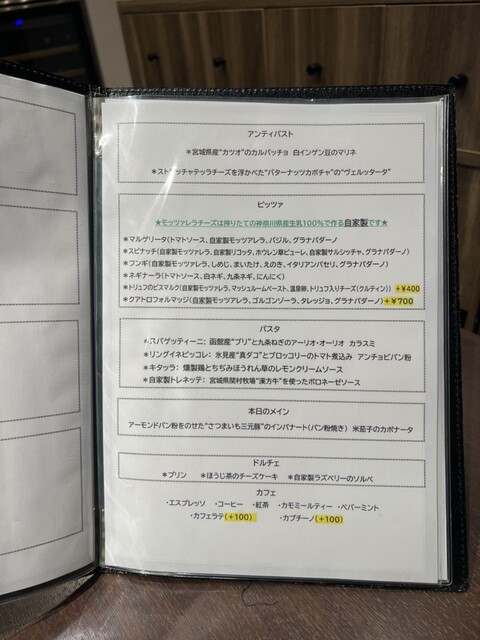 アンティパスト
＊宮城県産“カツオ”のカルパッチョ 白インゲン豆のマリネ
＊ストラッチャテッラチーズを浮かべた“バターナッツカボチャ”の“ヴェルッタータ”
ピッツァ
★モッツァレラチーズは搾りたての神奈川県産生乳100％で作る自家製です★
＊マルゲリータ(トマトソース、自家製モッツァレラ、バジル、グラナパダーノ
＊スピナッチ(自家製モッツァレラ、自家製リコッタ、ホウレン草ピューレ、自家製サルシッチャ、グラナパダーノ)
＊フンギ(自家製モッツァレラ、しめじ、まいたけ、えのき、イタリアンパセリ、グラナパダーノ)
＊ネギナーラ(トマトソース、白ネギ、九条ネギ、にんにく)
＊トリュフのビスマルク(自家製モッツァレラ、マッシュルームペースト、温泉卵、トリュフ入りチーズ(クルティン)) ＋￥400
＊クアトロフォルマッジ(自家製モッツァレラ、ゴルゴンゾーラ、タレッジョ、グラナパダーノ)＋￥700
パスタ
＊スパゲッティーニ: 函館産“ブリ”と九条ねぎのアーリオ・オーリオ カラスミ
＊リングイネピッコレ: 氷見産“真ダコ”とブロッコリーのトマト煮込み アンチョビパン粉
＊キタッラ: 燻製鶏とちぢみほうれん草のレモンクリームソース
＊自家製トレネッテ: 宮城県関村牧場“漢方牛”を使ったボロネーゼソース
本日のメイン
アーモンドパン粉をのせた“さつまいも三元豚”のインパナート(パン粉焼き) 米茄子のカポナータ
ドルチェ
＊プリン ＊ほうじ茶のチーズケーキ ＊自家製ラズベリーのソルベ
カフェ
・エスプレッソ ・コーヒー ・紅茶 ・カモミールティー ・ペパーミント
・カフェラテ(＋100) ・カプチーノ(＋100)